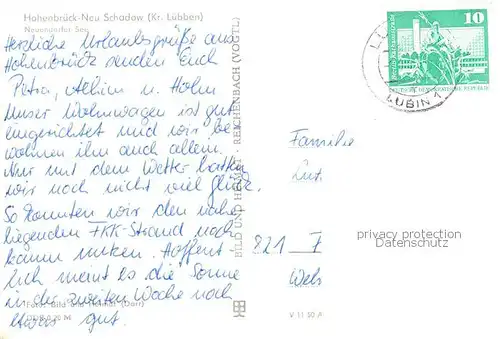 Hohenbrück-Neu Schadow (Kr. Lübben)
Neuendorfer See
Herzliche Urlaubsgrüße aus
Hohenbrück senden Euch
Petra, Achim u. Hahn
Unser Wohnwagen ist gut
eingerichtet und wir be-
wohnen ihn auch allein.
Nur mit dem Wetter hatten
wir noch nicht viel Glück.
So konnten wir den nahe
liegenden FKK-Strand noch
kaum nutzen. Hoffent-
lich meint es die Sonne
in der zweiten Woche noch
etwas gut.
Foto: Bild und Heimat (Dorf)
DDR 0,20 M
BILD UND HEIMAT · REICHENBACH (VOGTL)
10
DEUTSCHE DEMOKRATISCHE REPUBLIK
LUBIN 1
Familie
Lut
privacy protection
Datenschutz
821 F
Wels
V 11 50 A